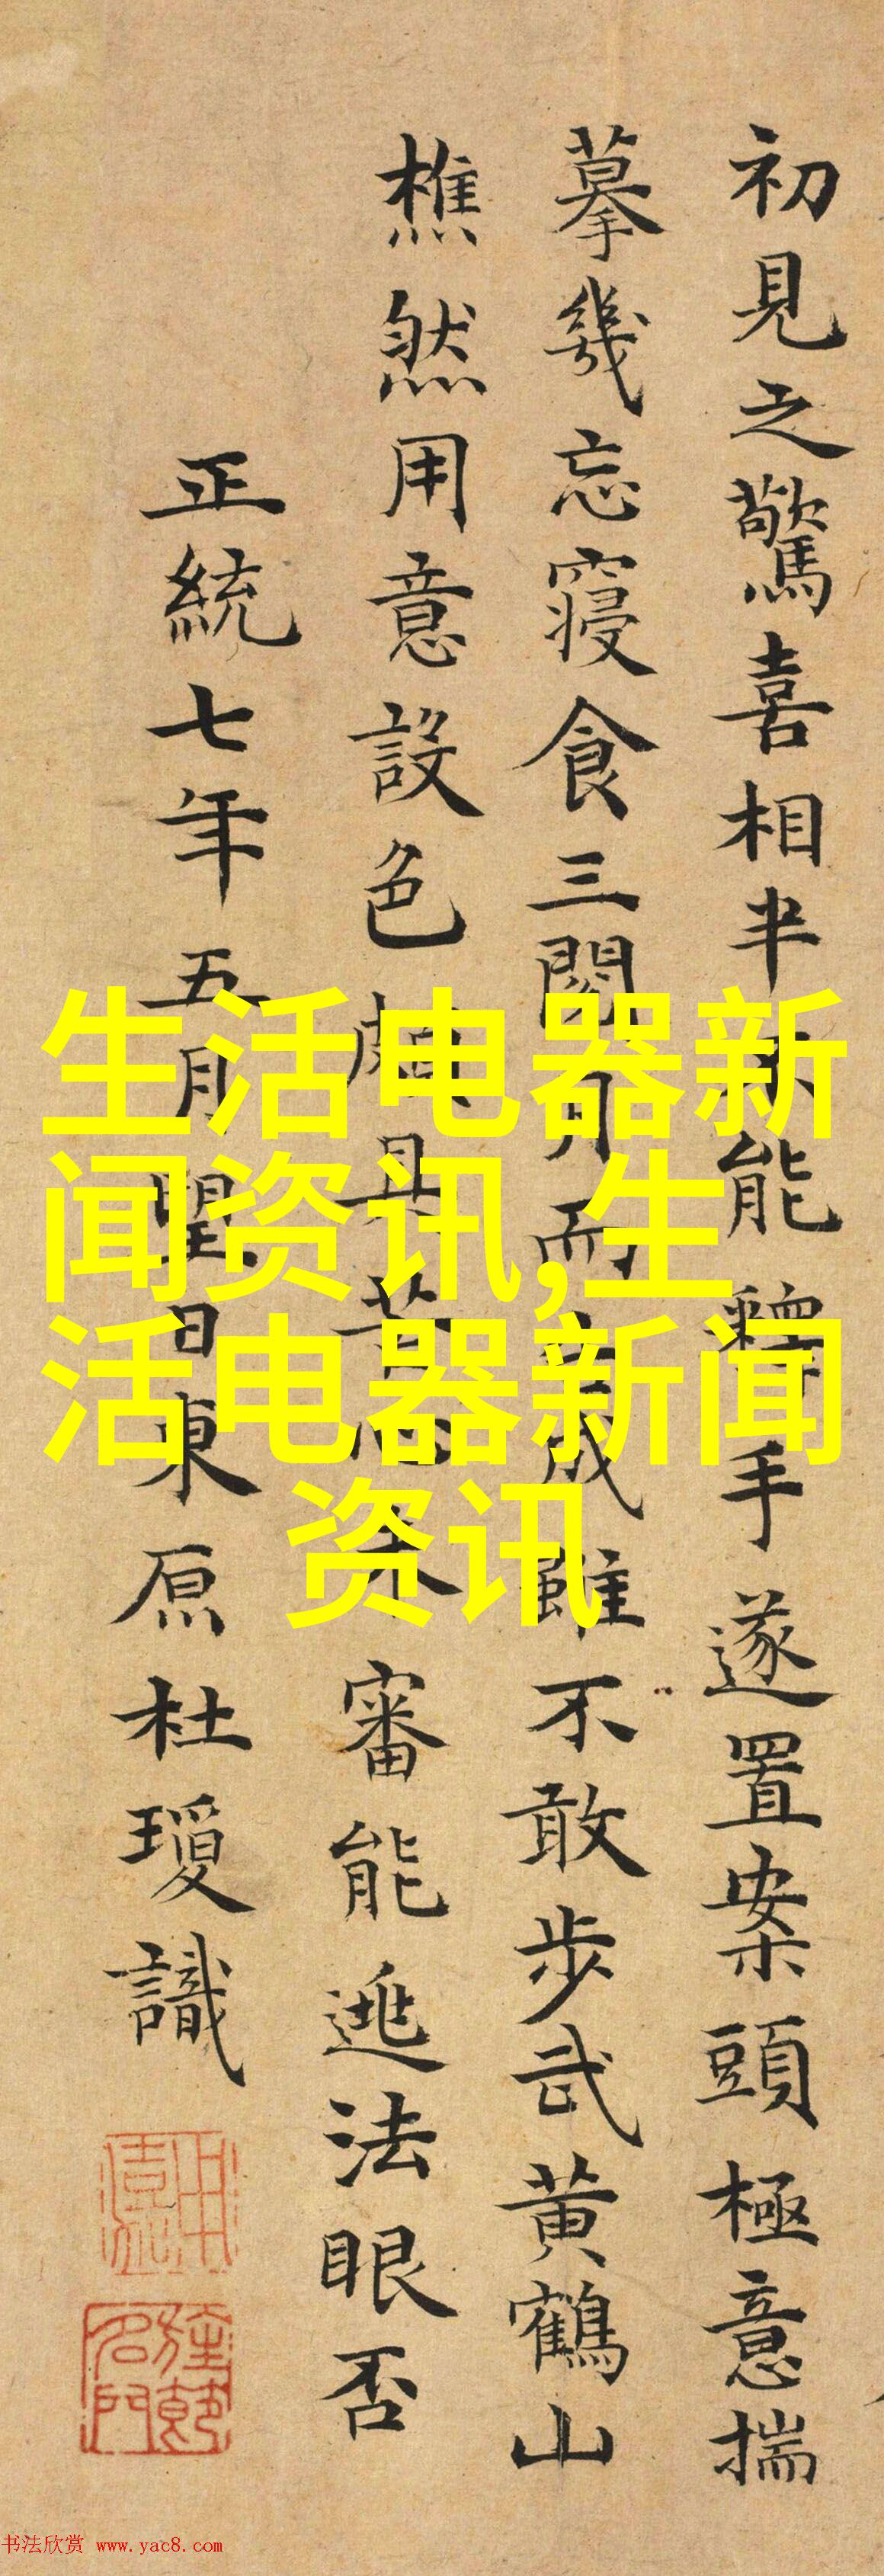 初見之驚喜相半不能釋手遂置案頭極意揣
摹幾忘寢食三閱月而克成雖不敢步武黃鶴山
樵然用意設色頗具苦心未審能逃法眼否
正統七年五月望日東原杜瓊識
生活电器新
闻资讯,生
活电器新闻
资讯
书法欣赏 www.yac8.com